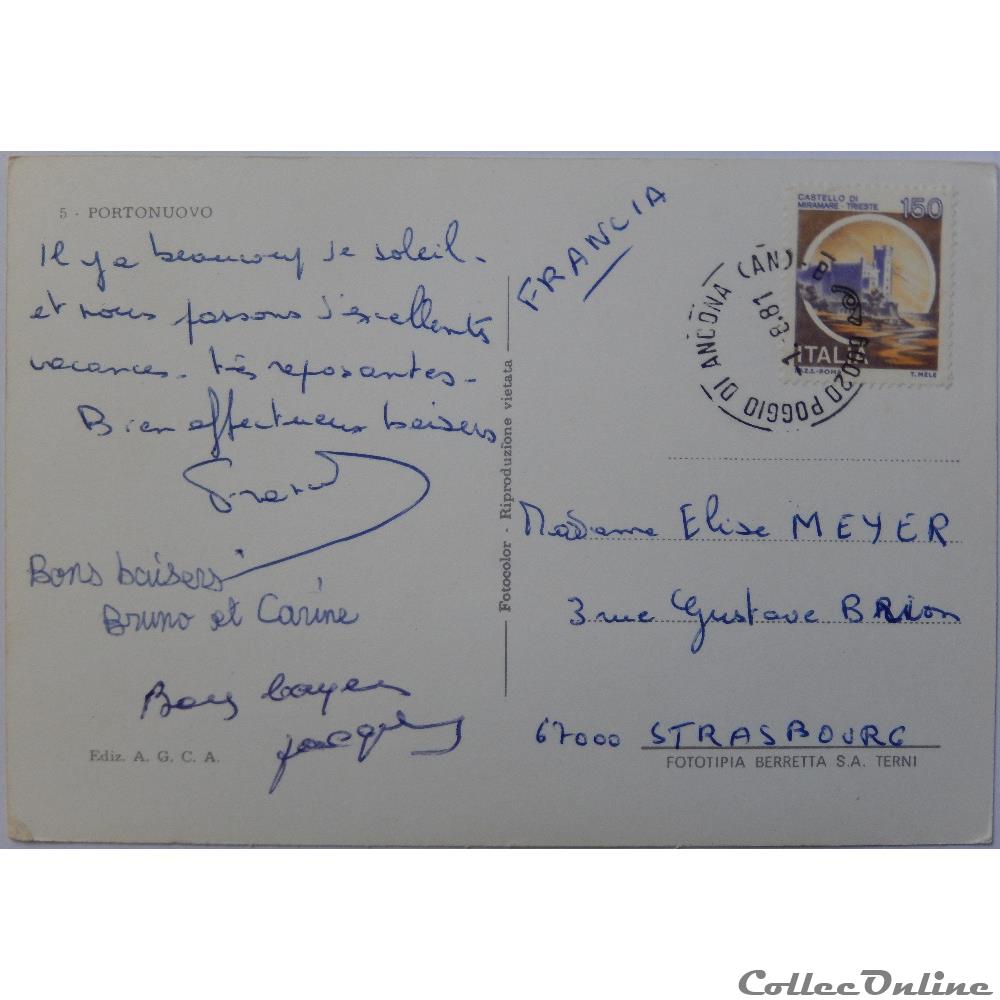 5 - PORTONUOVO
Il y a beaucoup de soleil -
et nous passons d'excellentes
vacances - très reposantes -
Bien affectueux baisers
Bons baisers
Bruno et Carine
Bons
Jacques
Ediz. A. G. C. A.
Fotocolor - Riproduzione vietata
FRANCIA
CASTELLO DI
MIRAMARE - TRIESTE
150
ITALIA
I.P.Z.S. - ROMA
T. MELE
60020 POGGIO DI ANCONA (AN)
8.81
Madame Elise MEYER
3 rue Gustave BRION
67000 STRASBOURG
FOTOTIPIA BERRETTA S.A. TERNI
CollecOnline